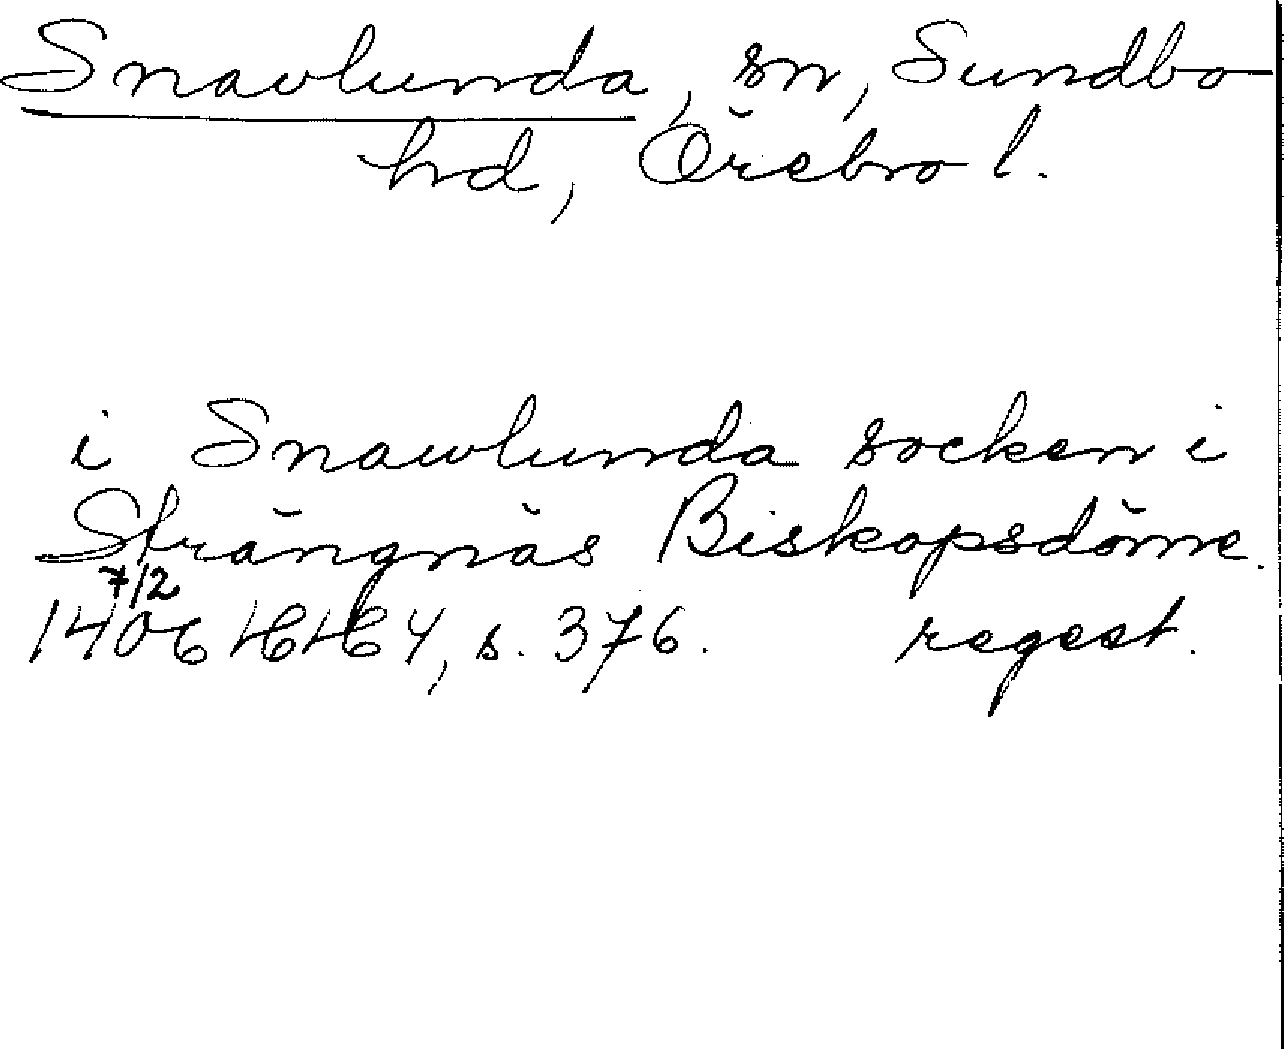 Snavlunda, sn, Sundbo
hd, Örebro l.
i Snawlunda socken i
Strängnäs Biskopsdöme.
7/2
1406 HH 4, s. 376. regest.